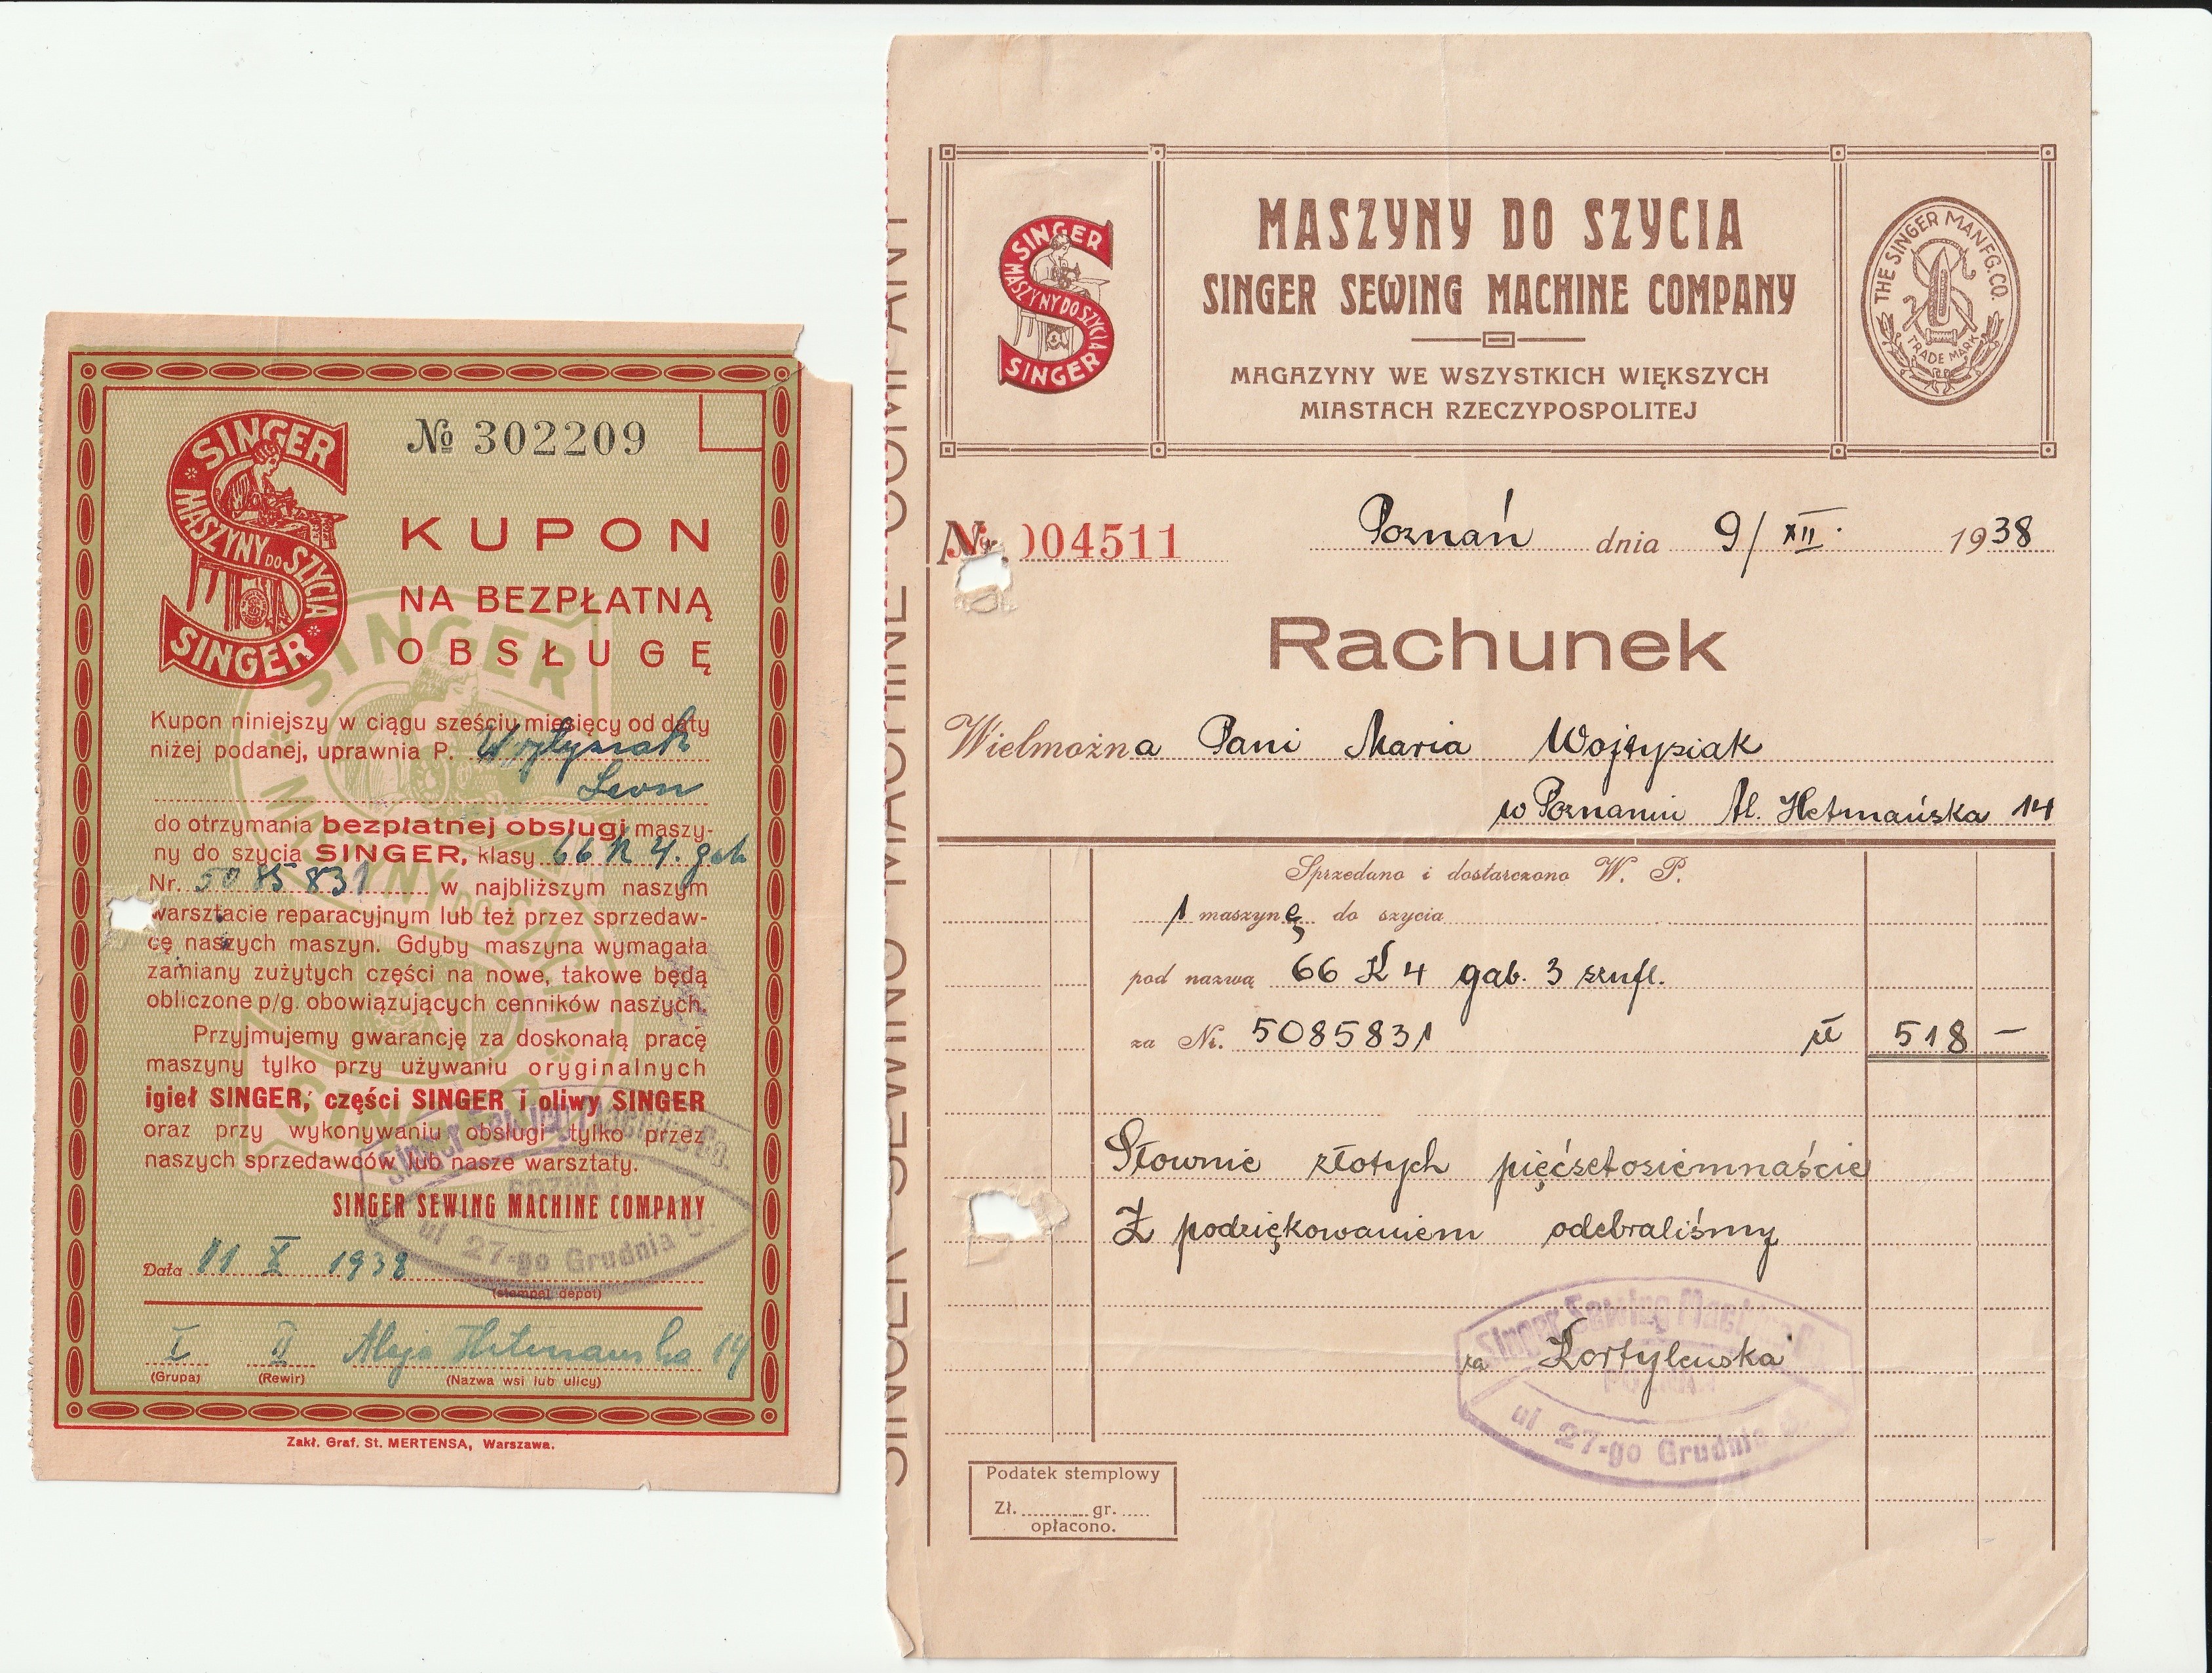 SINGER
MASZYNY DO SZYCIA
SINGER
№ 302209
KUPON
NA BEZPŁATNĄ
OBSŁUGĘ
Kupon niniejszy w ciągu sześciu miesięcy od daty
niżej podanej, uprawnia P. Wojtysiak
Leon
do otrzymania bezpłatnej obsługi maszy-
ny do szycia SINGER, klasy 66 K 4. gab
Nr. 5085831 w najbliższym naszym
warsztacie reparacyjnym lub też przez sprzedaw-
cę naszych maszyn. Gdyby maszyna wymagała
zamiany zużytych części na nowe, takowe będą
obliczone p/g. obowiązujących cenników naszych.
Przyjmujemy gwarancję za doskonałą pracę
maszyny tylko przy używaniu oryginalnych
igieł SINGER, części SINGER i oliwy SINGER
oraz przy wykonywaniu obsługi tylko przez
naszych sprzedawców lub nasze warsztaty.
SINGER SEWING MACHINE COMPANY
Singer Sewing Machine Co.
POZNAŃ
ul 27-go Grudnia
Data 11 X 1938
(stempel depot)
I II Aleja Hetmanska 14
(Grupa) (Rewir) (Nazwa wsi lub ulicy)
Zakł. Graf. St. MERTENSA, Warszawa.
SINGER SEWING MACHINE COMPANY
SINGER
MASZYNY DO SZYCIA
SINGER
MASZYNY DO SZYCIA
SINGER SEWING MACHINE COMPANY
MAGAZYNY WE WSZYSTKICH WIĘKSZYCH
MIASTACH RZECZYPOSPOLITEJ
THE SINGER MANFG. CO.
TRADE MARK
№ 004511
Poznań dnia 9/XII. 1938
Rachunek
Wielmożna Pani Maria Wojtysiak
w Poznaniu Al. Hetmańska 14
Sprzedano i dostarczono W. P.
1 maszynę do szycia
pod nazwą 66 K 4 gab. 3 szufl.
za Nr. 5085831 zł 518 –
Słownie złotych pięćsetosiemnaście
Z podziękowaniem odebraliśmy
Singer Sewing Machine Co.
za Kortylewska
POZNAŃ
ul 27-go Grudnia
Podatek stemplowy
Zł. gr.
opłacono.